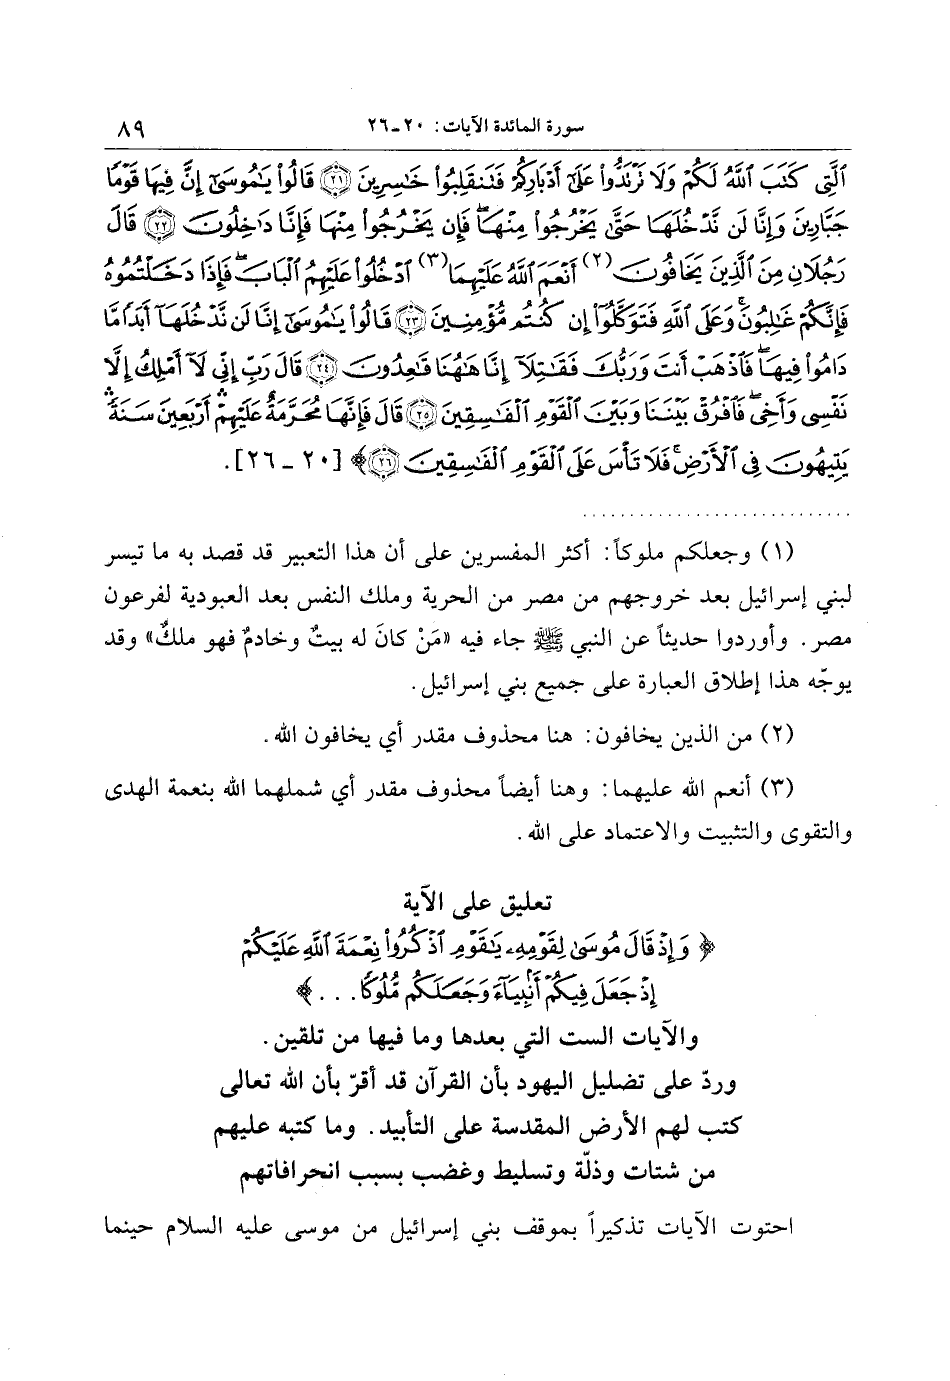 سورة المائدة الآيات: ٢٠ـ٢٦ ٨٩
ٱلَّتِى كَتَبَ ٱللَّهُ لَكُمْ وَلَا تَرْتَدُّوا۟ عَلَىٰٓ أَدْبَارِكُمْ فَتَنقَلِبُوا۟ خَٰسِرِينَ ﴿٢١﴾ قَالُوا۟ يَٰمُوسَىٰٓ إِنَّ فِيهَا قَوْمًا
جَبَّارِينَ وَإِنَّا لَن نَّدْخُلَهَا حَتَّىٰ يَخْرُجُوا۟ مِنْهَا ۖ فَإِن يَخْرُجُوا۟ مِنْهَا فَإِنَّا دَٰخِلُونَ ﴿٢٢﴾ قَالَ
رَجُلَانِ مِنَ ٱلَّذِينَ يَخَافُونَ (٢) أَنْعَمَ ٱللَّهُ عَلَيْهِمَا (٣) ٱدْخُلُوا۟ عَلَيْهِمُ ٱلْبَابَ ۖ فَإِذَا دَخَلْتُمُوهُ
فَإِنَّكُمْ غَٰلِبُونَ ۚ وَعَلَى ٱللَّهِ فَتَوَكَّلُوٓا۟ إِن كُنتُم مُّؤْمِنِينَ ﴿٢٣﴾ قَالُوا۟ يَٰمُوسَىٰٓ إِنَّا لَن نَّدْخُلَهَآ أَبَدًا مَّا
دَامُوا۟ فِيهَا ۖ فَٱذْهَبْ أَنتَ وَرَبُّكَ فَقَٰتِلَآ إِنَّا هَٰهُنَا قَٰعِدُونَ ﴿٢٤﴾ قَالَ رَبِّ إِنِّى لَآ أَمْلِكُ إِلَّا
نَفْسِى وَأَخِى ۖ فَٱفْرُقْ بَيْنَنَا وَبَيْنَ ٱلْقَوْمِ ٱلْفَٰسِقِينَ ﴿٢٥﴾ قَالَ فَإِنَّهَا مُحَرَّمَةٌ عَلَيْهِمْ ۛ أَرْبَعِينَ سَنَةً ۛ
يَتِيهُونَ فِى ٱلْأَرْضِ ۚ فَلَا تَأْسَ عَلَى ٱلْقَوْمِ ٱلْفَٰسِقِينَ ﴿٢٦﴾﴾ [٢٠ ـ ٢٦].
(١) وجعلكم ملوكاً: أكثر المفسرين على أن هذا التعبير قد قصد به ما تيسر
لبني إسرائيل بعد خروجهم من مصر من الحرية وملك النفس بعد العبودية لفرعون
مصر. وأوردوا حديثاً عن النبي ﷺ جاء فيه «مَنْ كانَ له بيتٌ وخادمٌ فهو ملكٌ» وقد
يوجّه هذا إطلاق العبارة على جميع بني إسرائيل.
(٢) من الذين يخافون: هنا محذوف مقدر أي يخافون الله.
(٣) أنعم الله عليهما: وهنا أيضاً محذوف مقدر أي شملهما الله بنعمة الهدى
والتقوى والتثبيت والاعتماد على الله.
تعليق على الآية
﴿ وَإِذْ قَالَ مُوسَىٰ لِقَوْمِهِۦ يَٰقَوْمِ ٱذْكُرُوا۟ نِعْمَةَ ٱللَّهِ عَلَيْكُمْ
إِذْ جَعَلَ فِيكُمْ أَنۢبِيَآءَ وَجَعَلَكُم مُّلُوكًا. . . ﴾
والآيات الست التي بعدها وما فيها من تلقين.
وردّ على تضليل اليهود بأن القرآن قد أقرّ بأن الله تعالى
كتب لهم الأرض المقدسة على التأبيد. وما كتبه عليهم
من شتات وذلّة وتسليط وغضب بسبب انحرافاتهم
احتوت الآيات تذكيراً بموقف بني إسرائيل من موسى عليه السلام حينما